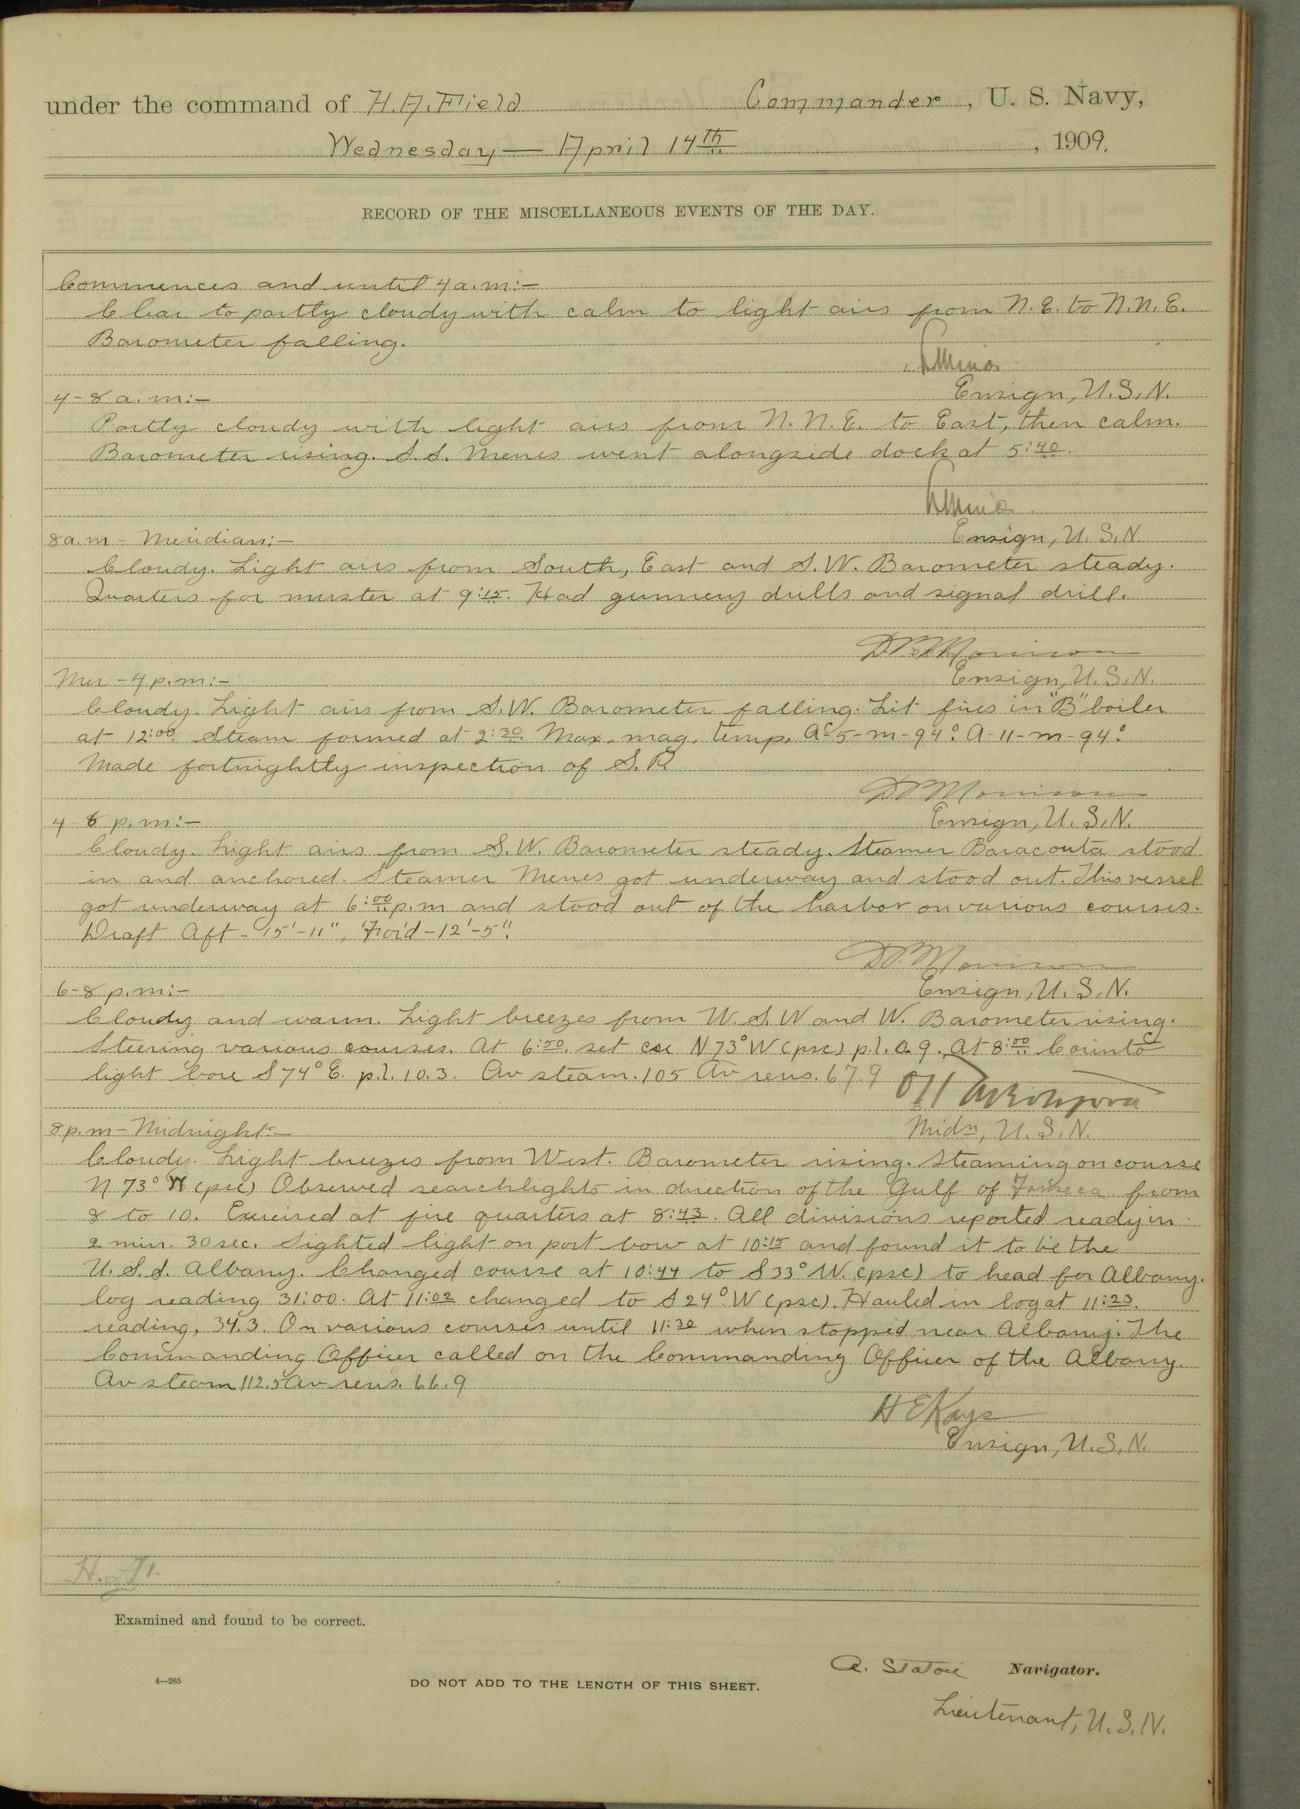 under the command of H. A. Field Commander, U. S. Navy,
Wednesday — April 14th, 1909.
RECORD OF THE MISCELLANEOUS EVENTS OF THE DAY.
Commences and until 4 a.m:—
Clear to partly cloudy with calm to light airs from N.E. to N.N.E.
Barometer falling.
Ensign, U.S.N.
4-8 a.m:—
Partly cloudy with light airs from N.N.E. to East, then calm.
Barometer rising. S.S. Menes went alongside dock at 5:40.
Ensign, U.S.N.
8 a.m - Meridian:—
Cloudy. Light airs from South, East and S.W. Barometer steady.
Quarters for muster at 9:15. Had gunnery drills and signal drill.
D P Morrison
Ensign, U.S.N.
Mer - 4 p.m:—
Cloudy. Light airs from S.W. Barometer falling. Lit fires in "B" boiler
at 12:00. Steam formed at 2:30. Max. mag. temp. A-5-m-94° A-11-m-94°
Made fortnightly inspection of S.P.
D P Morrison
Ensign, U.S.N.
4 6 p.m:—
Cloudy. Light airs from S.W. Barometer steady. Steamer Baracouta stood
in and anchored. Steamer Menes got underway and stood out. This vessel
got underway at 6:00 p.m and stood out of the harbor on various courses.
Draft Aft - 15'-11", For'd - 12'-5".
D P Morrison
Ensign, U.S.N.
6-8 p.m:—
Cloudy and warm. Light breezes from W.S.W and W. Barometer rising.
Steering various courses. At 6:50. set cse N73°W (psc) p.l. 0.9. At 8:00 Corinto
light bore S74°E. p.l. 10.3. Av steam. 105 Av revs. 67.9
Midn, U.S.N.
8 p.m - Midnight:—
Cloudy. Light breezes from West. Barometer rising. Steaming on course
N 73° W (psc) Observed searchlights in direction of the Gulf of Fonseca from
8 to 10. Exercised at fire quarters at 8:43. All divisions reported ready in
2 min. 30 sec. Sighted light on port bow at 10:15 and found it to be the
U.S.S. Albany. Changed course at 10:44 to S33°W. (psc) to head for Albany.
log reading 31:00. At 11:02 changed to S24°W (psc). Hauled in log at 11:23.
reading, 34.3. On various courses until 11:30 when stopped near Albany. The
Commanding Officer called on the Commanding Officer of the Albany.
Av steam 112.5 Av revs. 66.9
H E Kays
Ensign, U.S.N.
H. F.
Examined and found to be correct.
A. Staton Navigator.
4—265 DO NOT ADD TO THE LENGTH OF THIS SHEET.
Lieutenant, U.S.N.